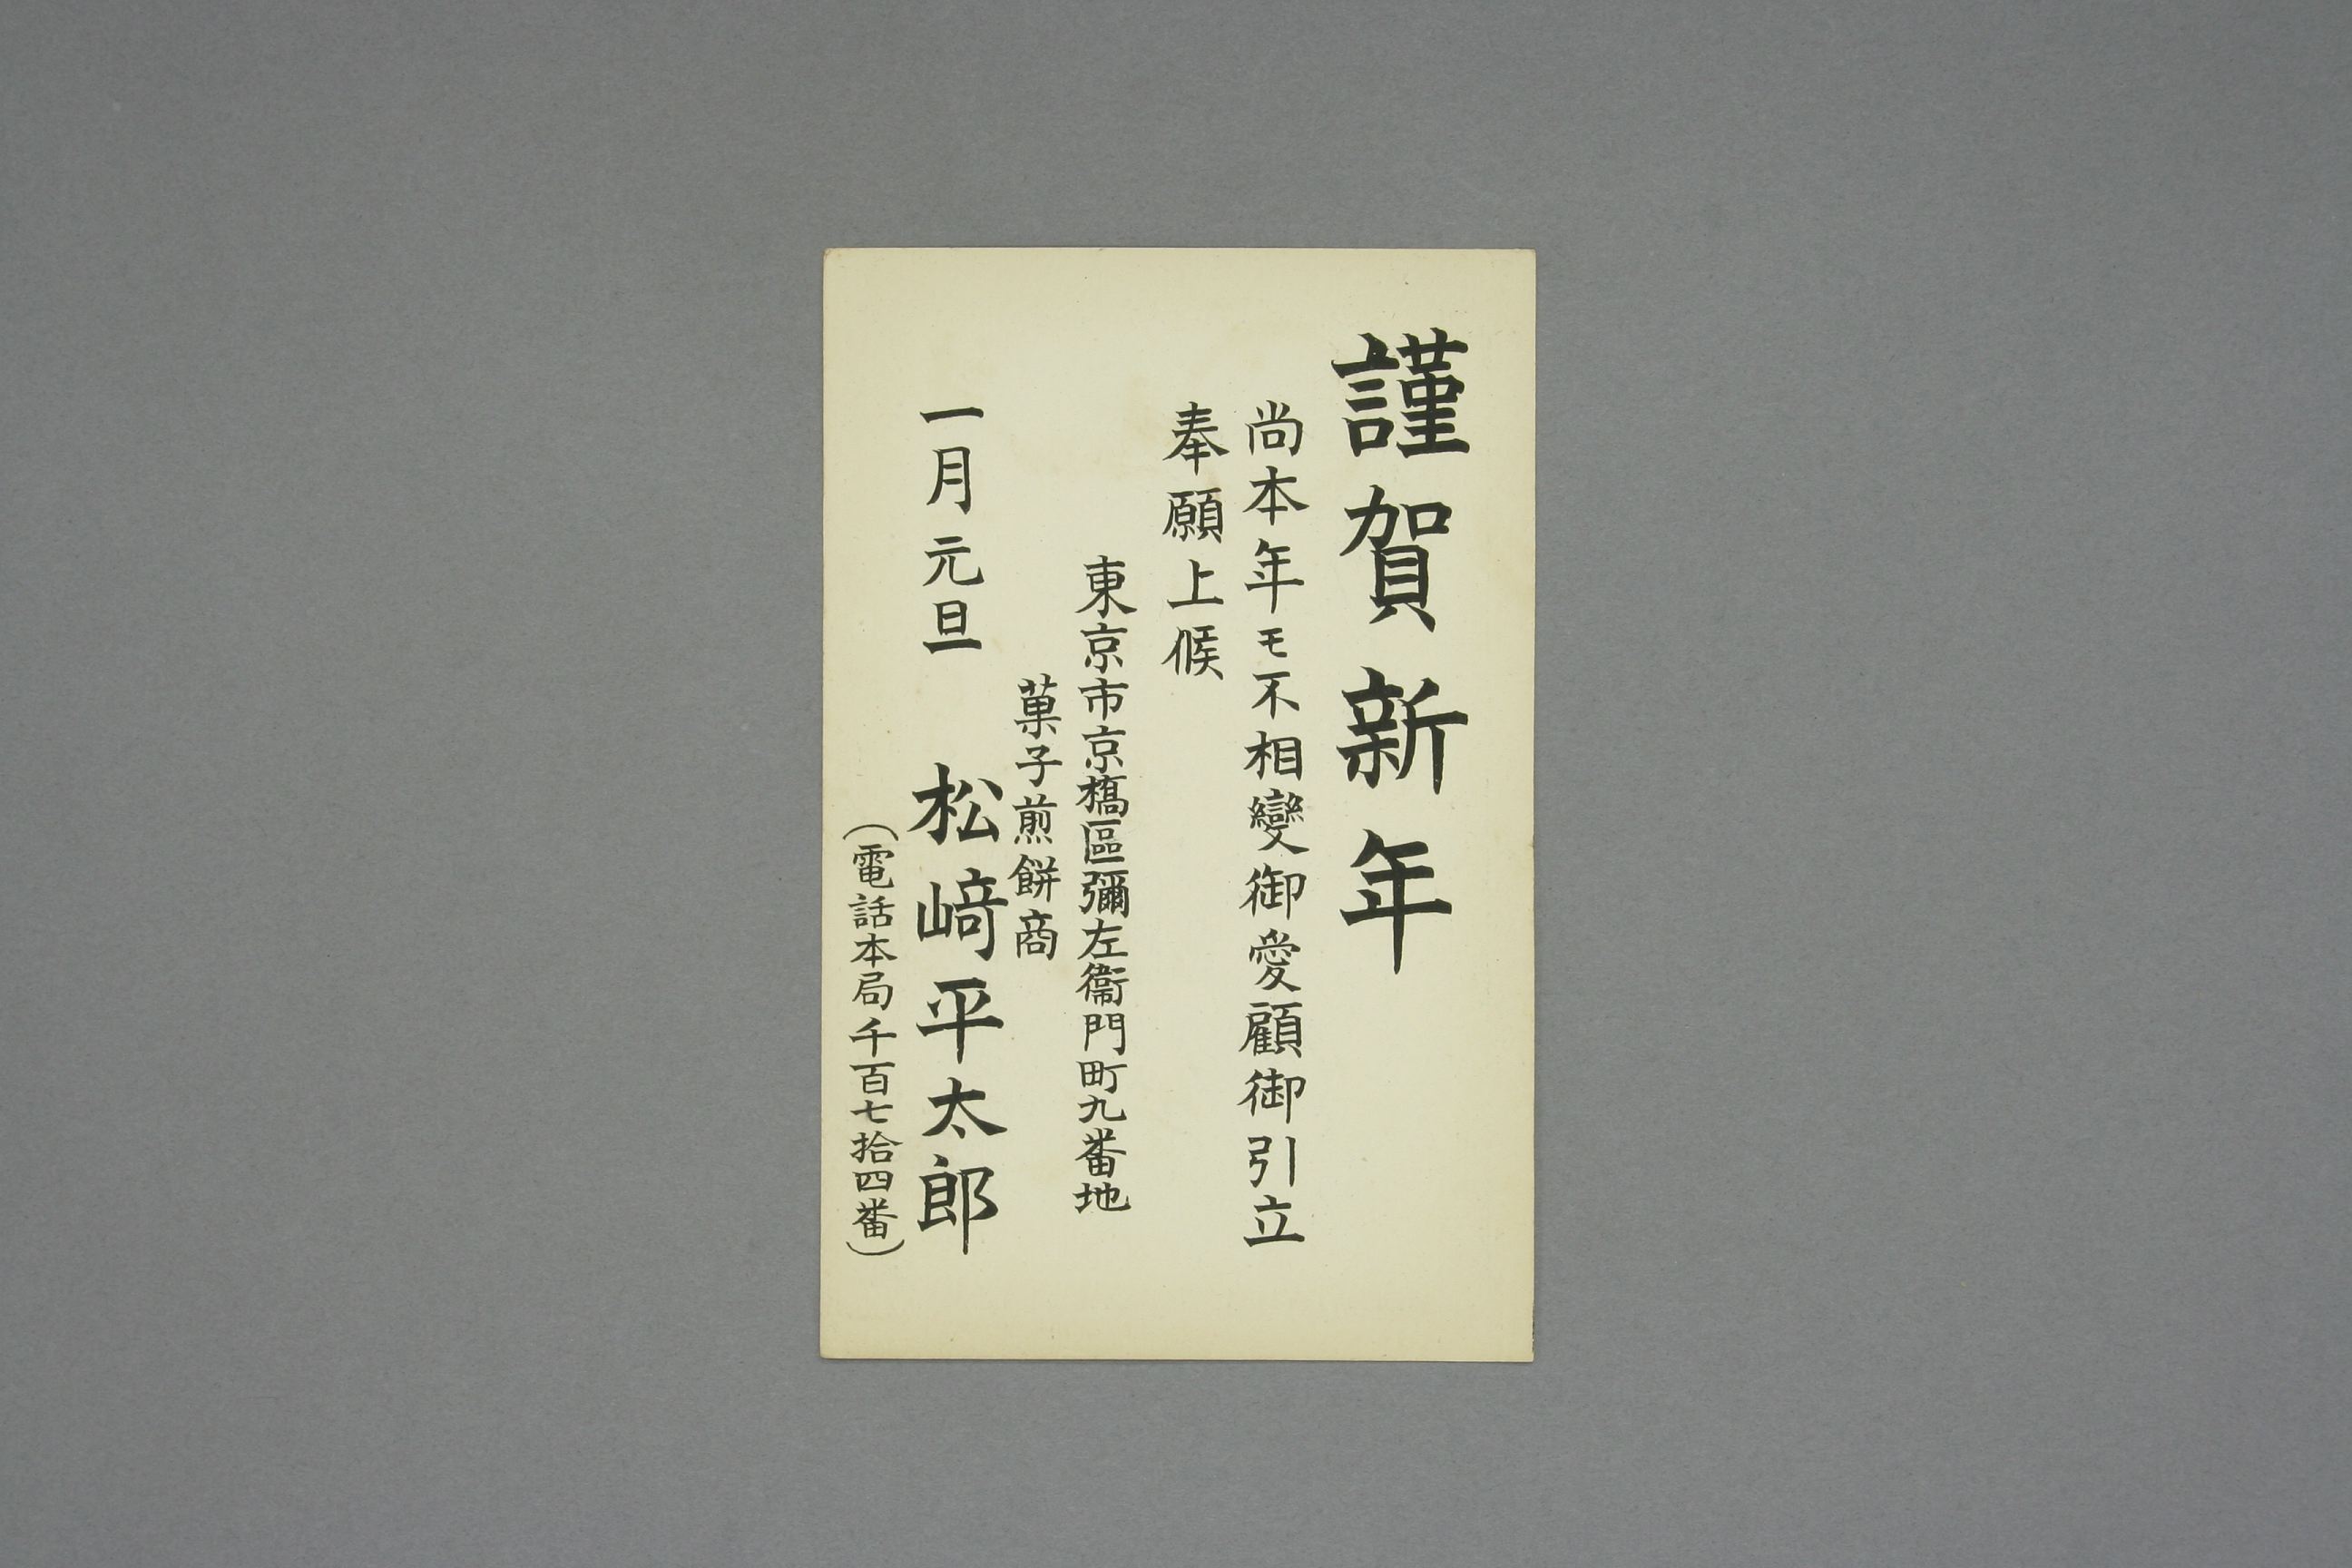 謹賀新年
尚本年モ不相變御愛顧御引立
奉願上候
東京市京橋區彌左衞門町九番地
菓子煎餅商
一月元旦 松﨑平太郎
(電話本局千百七拾四番)